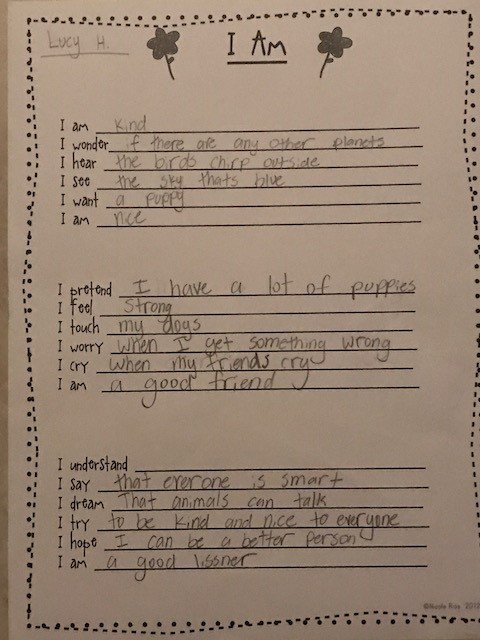 Lucy H.
I Am
I am kind
I wonder if there are any other planets
I hear the birds chirp outside
I see the sky thats blue
I want a puppy
I am nice
I pretend I have a lot of puppies
I feel Strong
I touch my dogs
I worry when I get something wrong
I cry when my friends cry
I am a good friend
I understand
I say that everone is smart
I dream That animals can talk
I try to be kind and nice to everyone
I hope I can be a better person
I am a good lissner
©Nicole Rios 2012